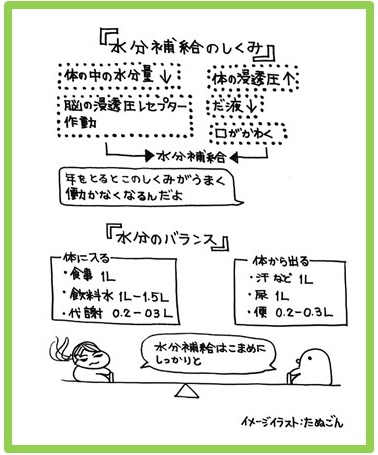 『水分補給のしくみ』
体の中の水分量↓
体の浸透圧↑
脳の浸透圧レセプター
作動
だ液↓
口がかわく
水分補給
年をとるとこのしくみがうまく
働かなくなるんだよ
『水分のバランス』
体に入る
・食事 1L
・飲料水 1L-1.5L
・代謝 0.2-03L
体から出る
・汗など 1L
・尿 1L
・便 0.2-0.3L
水分補給はこまめに
しっかりと
イメージイラスト:たぬごん